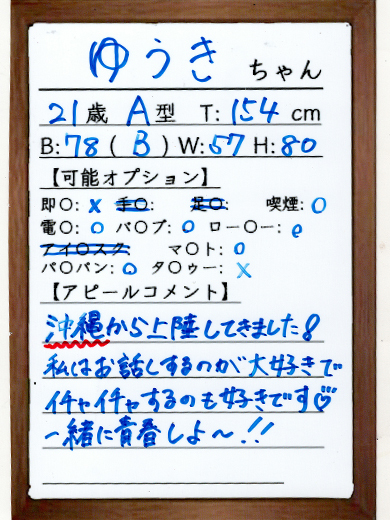 ゆうき ちゃん
21歳 A型 T:154cm
B:78(B)W:57H:80
【可能オプション】
即〇:x 手〇: 足〇: 喫煙:〇
電〇:〇 パ〇ブ:〇 ロー〇ー:〇
アイ〇スク: マ〇ト:〇
パ〇パン:〇 タ〇ゥー:X
【アピールコメント】
沖縄から上陸してきました!
私はお話しするのが大好きで
イチャイチャするのも好きです♡
一緒に青春しよ〜!!